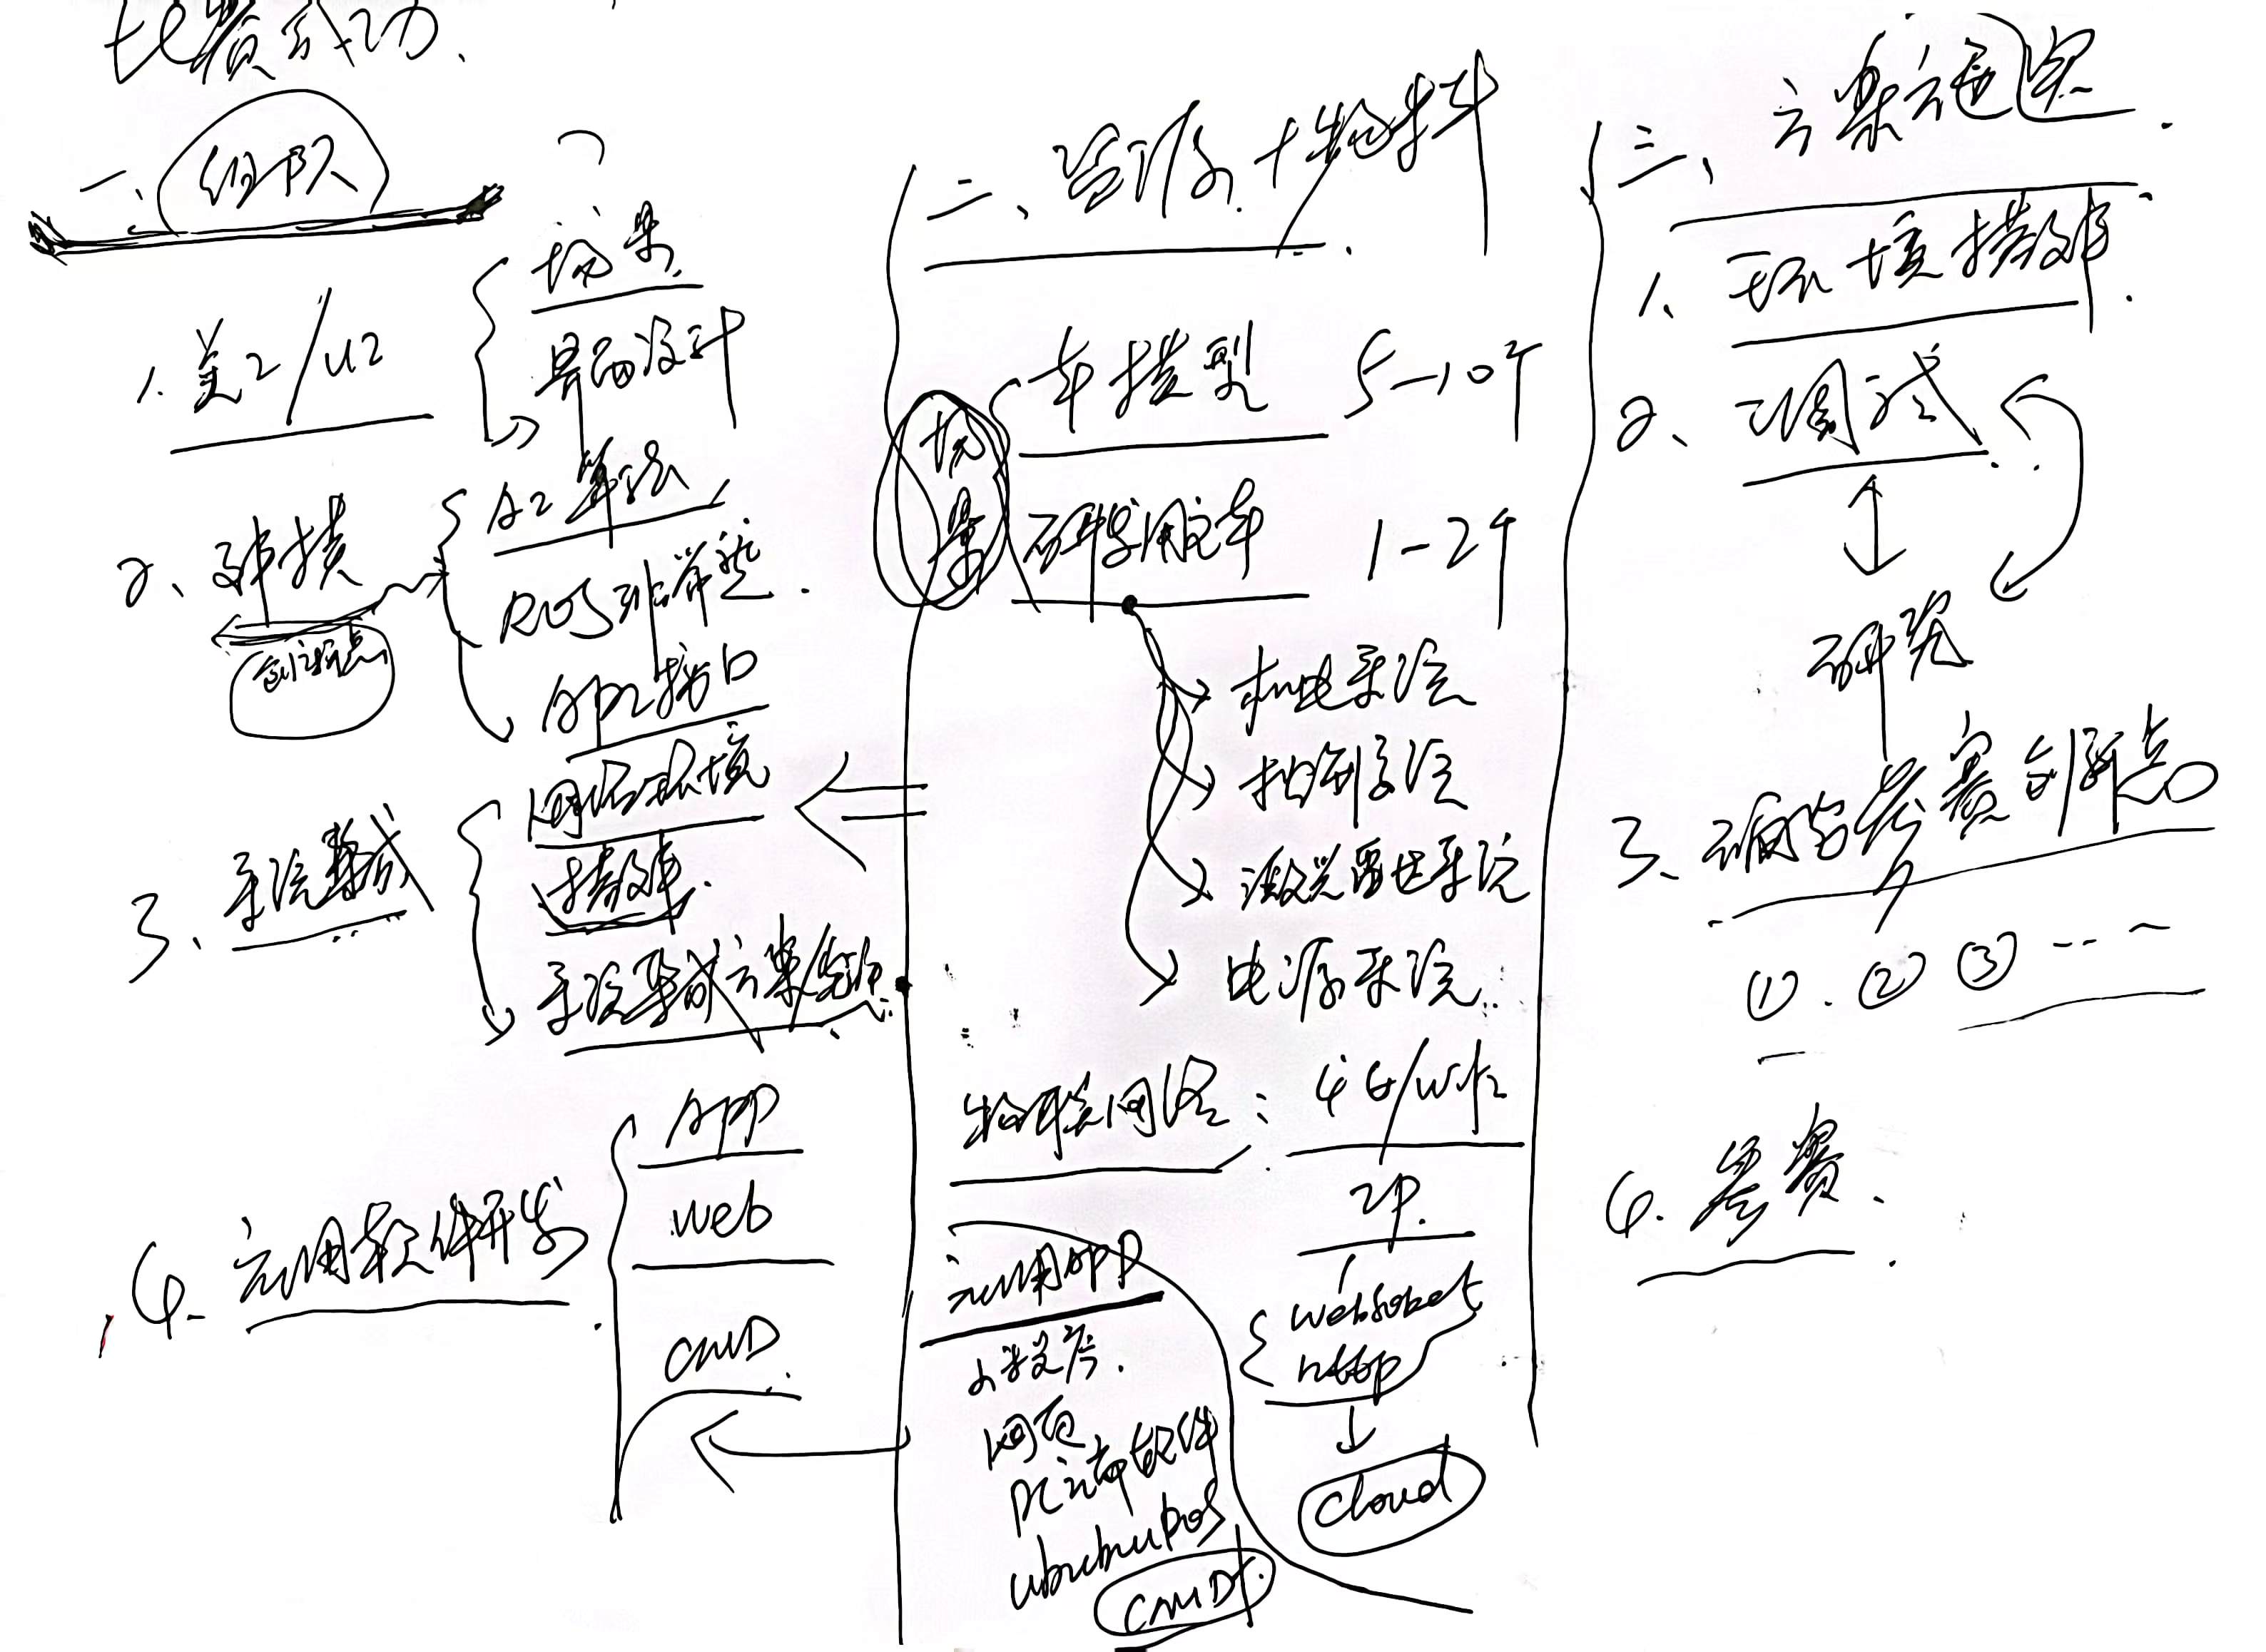 比赛成功.
一、组队
1. 美工/UI
场景
界面设计
2、建模
创新点
AI 算法
ROS 环节点
API接口
3、系统集成
网络环境
搭建.
系统集成方案/实施.
4. 应用软件开发
APP
Web
CMD.
二、资源+物料
场景
车模型 5-10个
研学用之车 1-2个
机电系统
控制系统
激光雷达系统
电源系统.
物联网络: 4G/Wifi
IP.
Websoket
http
Cloud
应用APP
小程序.
网页
PC端软件
ubuntu Dos
CMD.
三、方案实施.
1、环境搭建.
2、调试
研究
3、确定参赛创新点
①. ② ③ ---
4. 参赛.